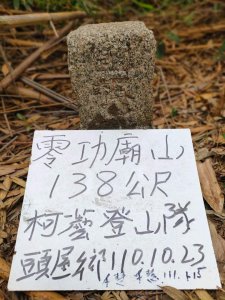 零功廟山
138公尺
柯藝登山隊
頭屋鄉110.10.23
111.1.15